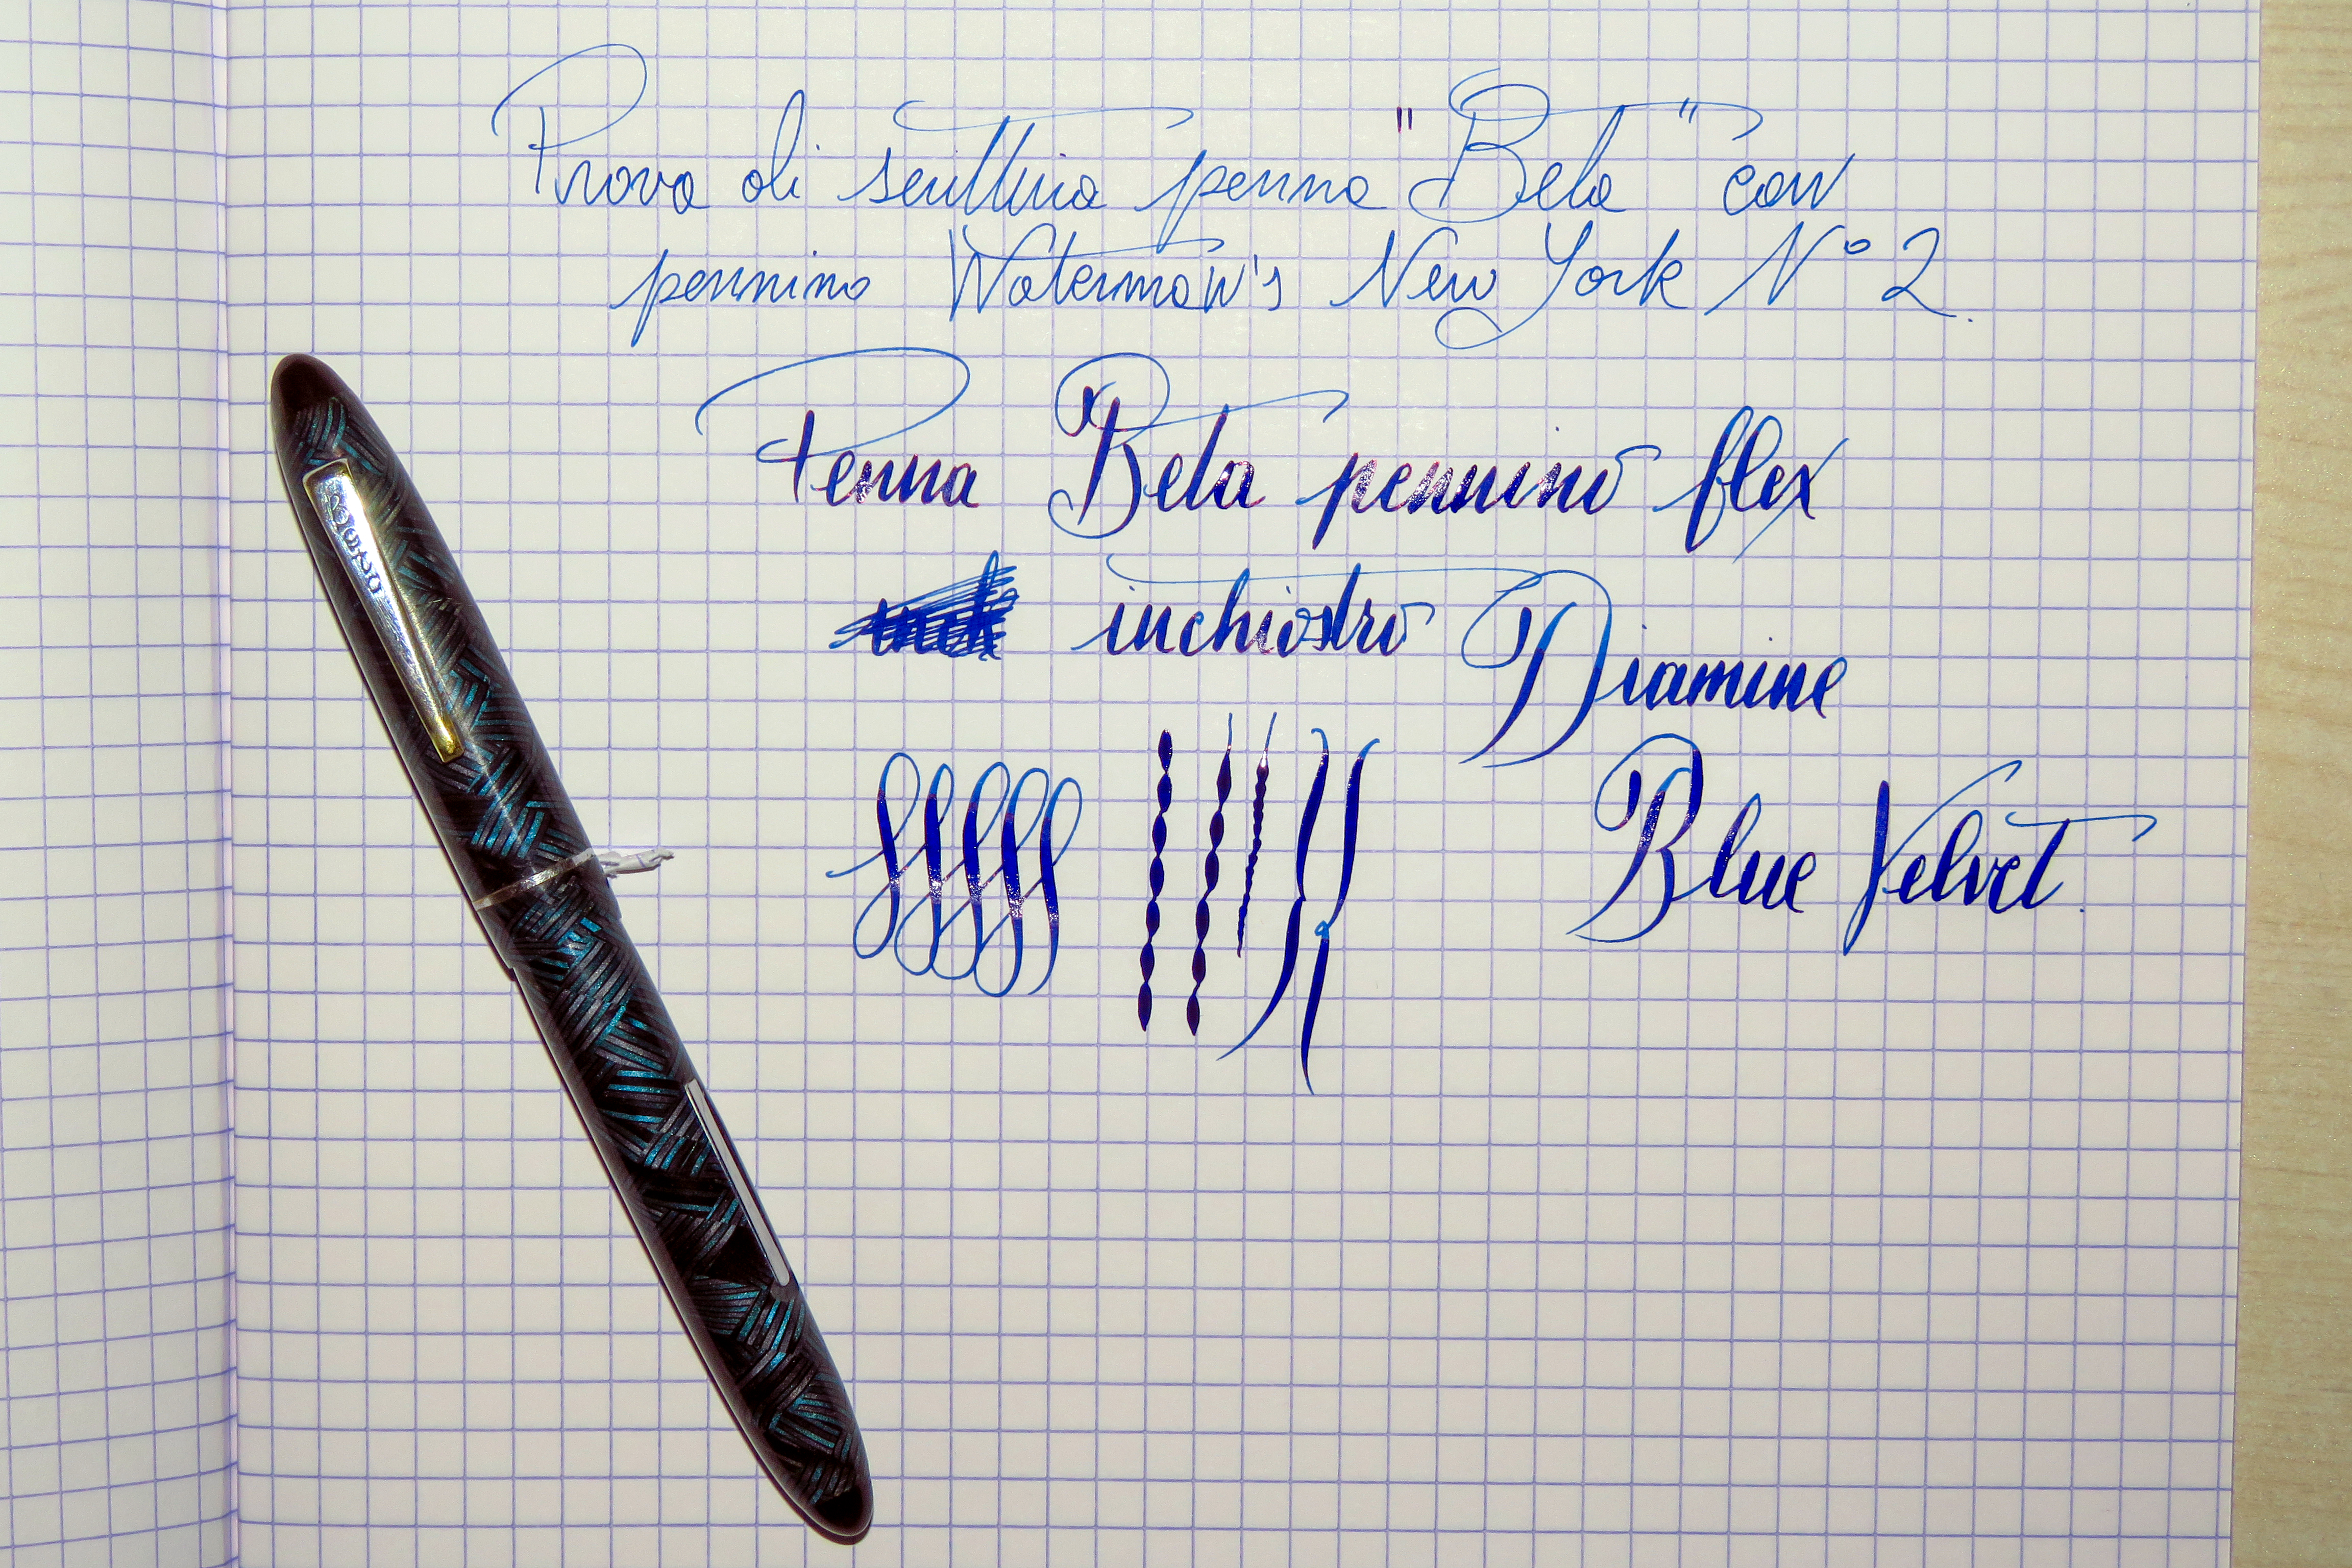 Prova di scrittura penna "Beta" con
pennino Waterman's New York N° 2.
Penna Beta pennino flex
inchiostro Diamine
Blue Velvet.